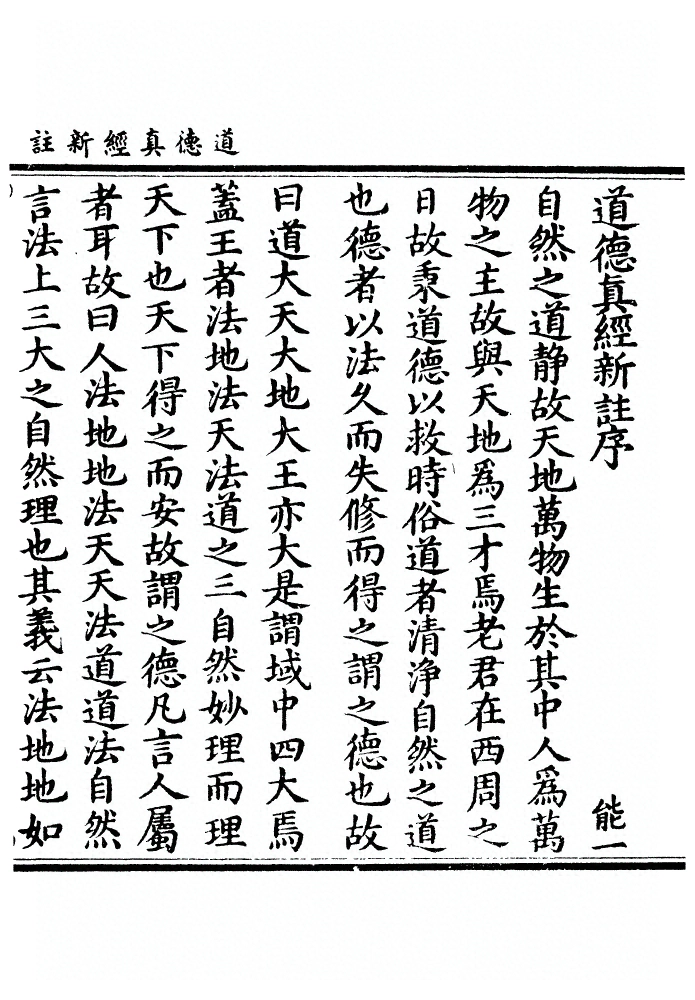 道德真經新註
道德眞經新註序
能一
自然之道静故天地萬物生於其中人爲萬
物之主故與天地爲三才焉老君在西周之
日故秉道德以救時俗道者清淨自然之道
也德者以法久而失修而得之謂之德也故
曰道大天大地大王亦大是謂域中四大焉
蓋王者法地法天法道之三自然妙理而理
天下也天下得之而安故謂之德凡言人屬
者耳故曰人法地地法天天法道道法自然
言法上三大之自然理也其義云法地地如